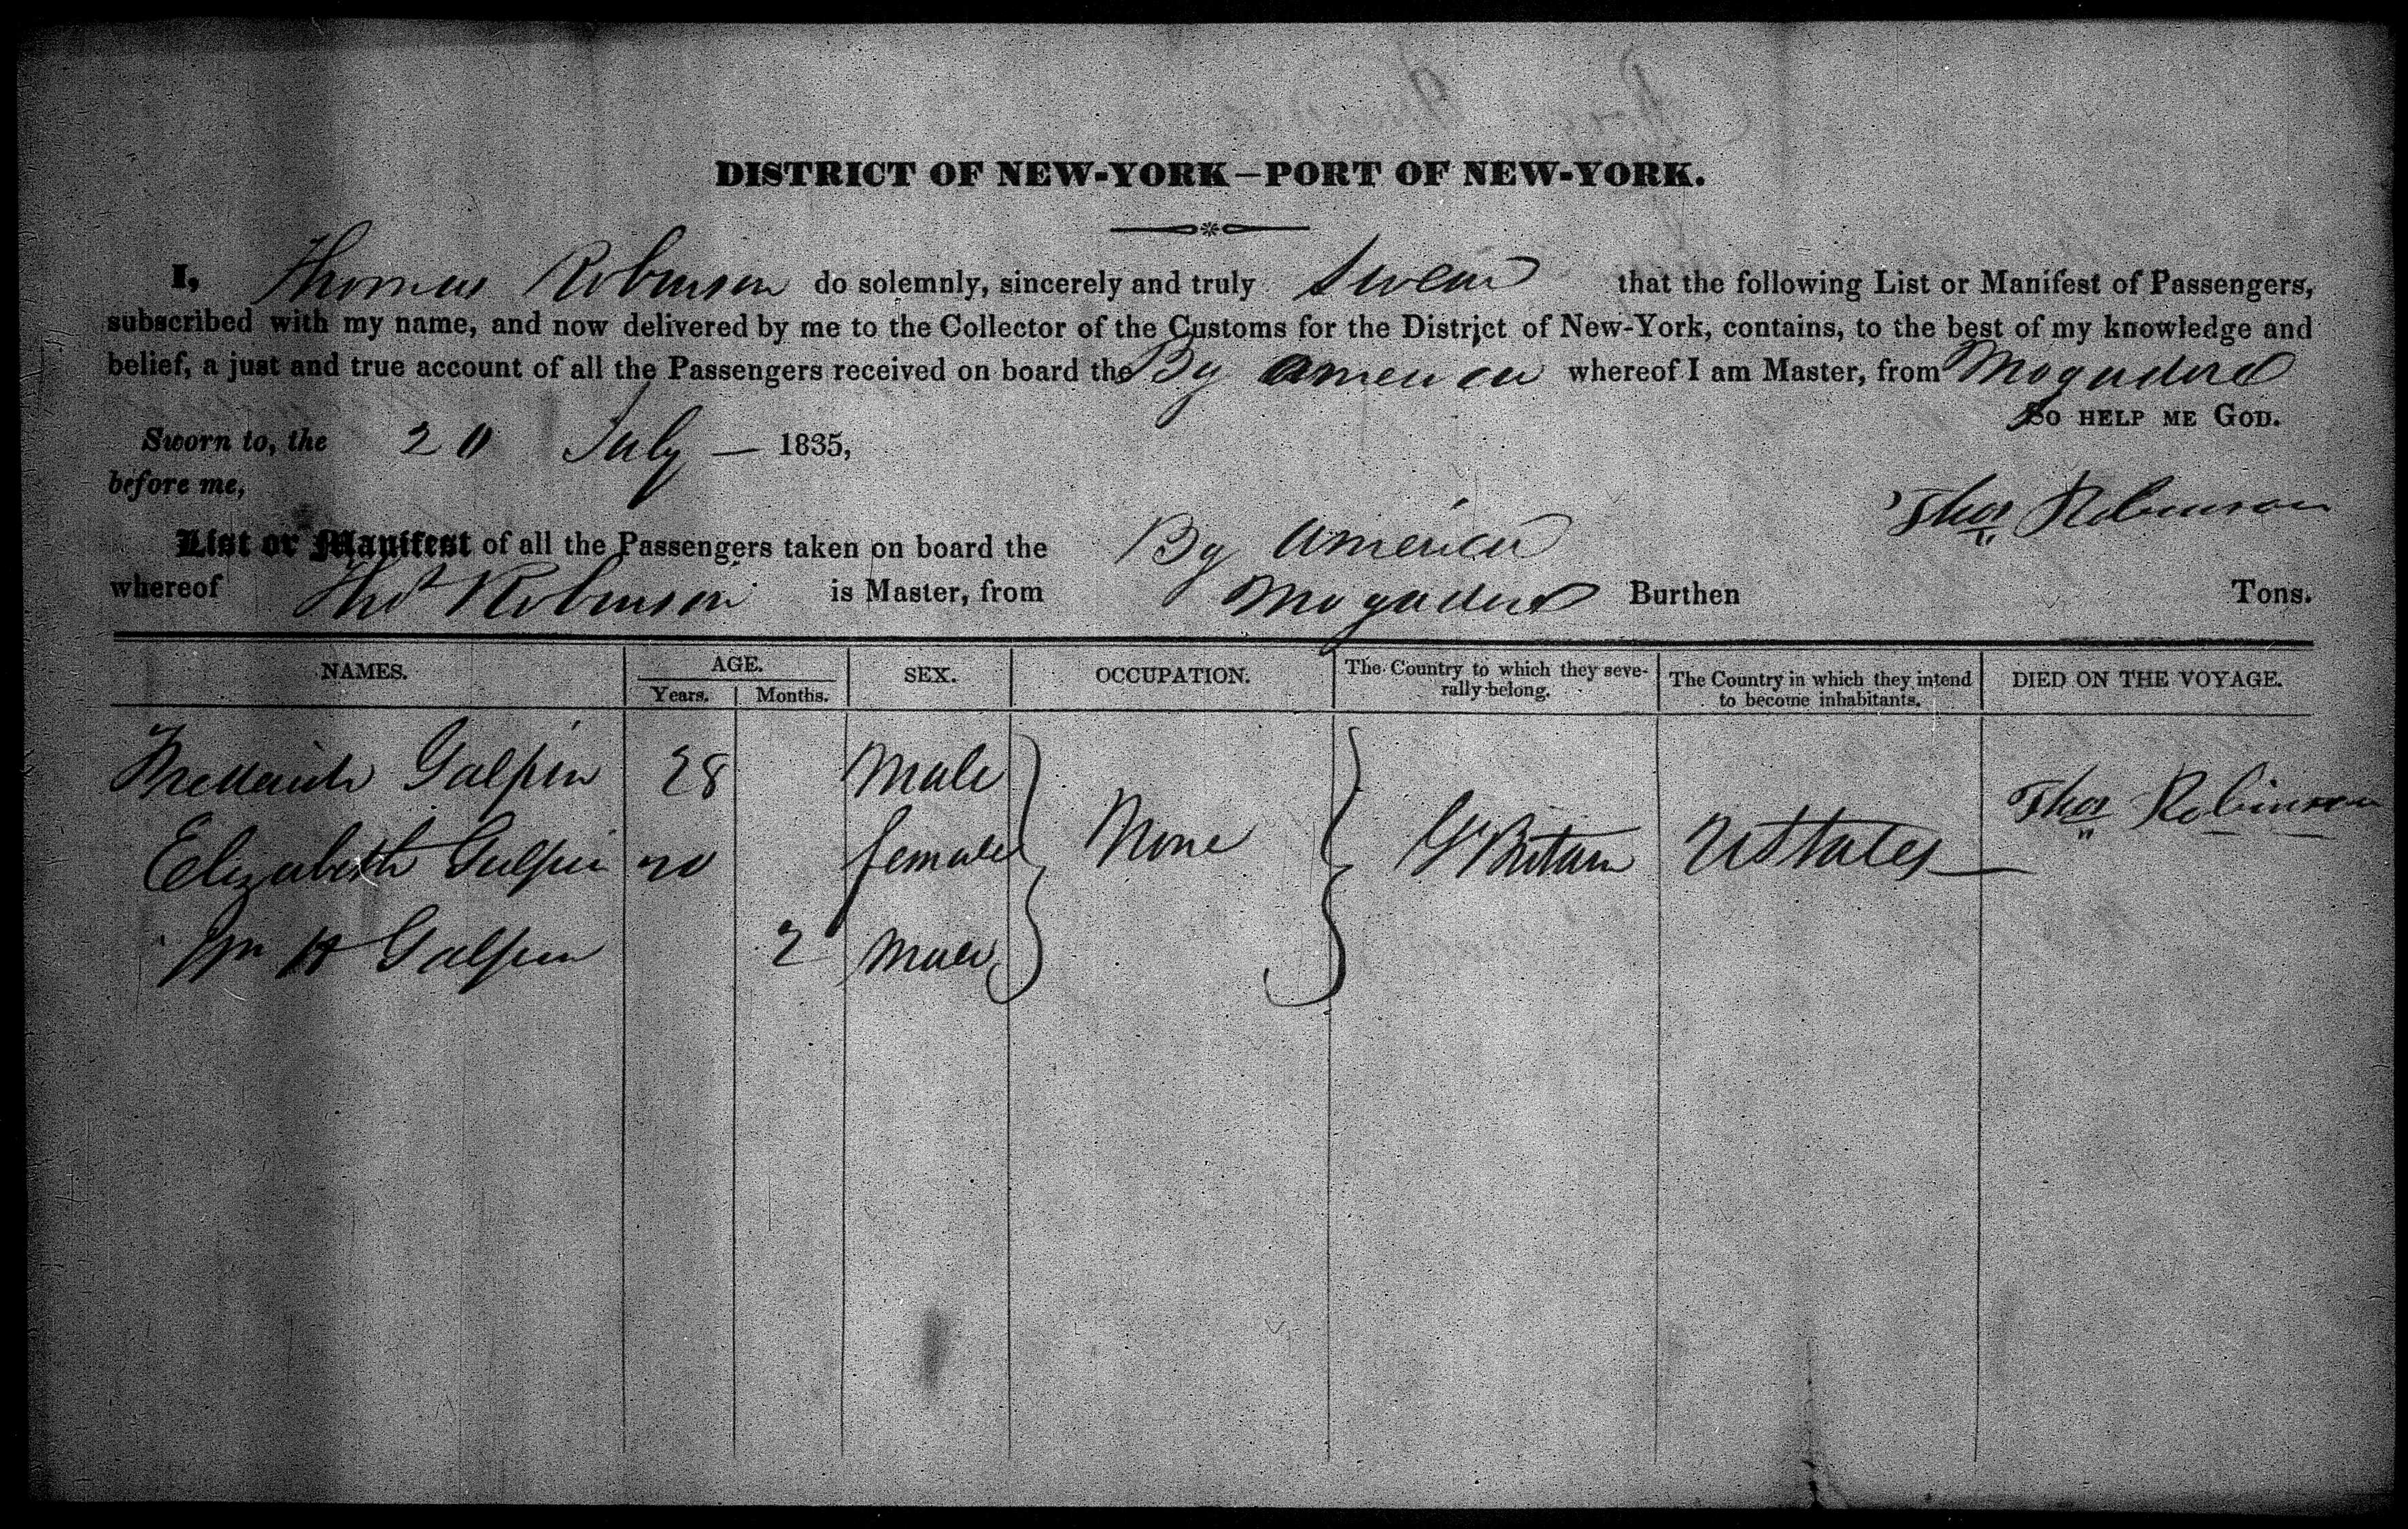 DISTRICT OF NEW-YORK—PORT OF NEW-YORK.
I, Thomas Robinson do solemnly, sincerely and truly Swear that the following List or Manifest of Passengers,
subscribed with my name, and now delivered by me to the Collector of the Customs for the District of New-York, contains, to the best of my knowledge and
belief, a just and true account of all the Passengers received on board the Bg America whereof I am Master, from Mogadore
So HELP ME GOD.
Sworn to, the 20 July — 1835,
before me,
Thos Robinson
List or Manifest of all the Passengers taken on board the Bg America
whereof Thos Robinson is Master, from Mogadore Burthen Tons.
NAMES. AGE. SEX. OCCUPATION. The Country to which they seve- The Country in which they intend DIED ON THE VOYAGE.
Years. Months. rally belong. to become inhabitants.
Frederick Galpin 28 Male
Thos Robinson
Elizabeth Galpin 20 female None Gt Britain U States —
Wm H Galpin 2 Male